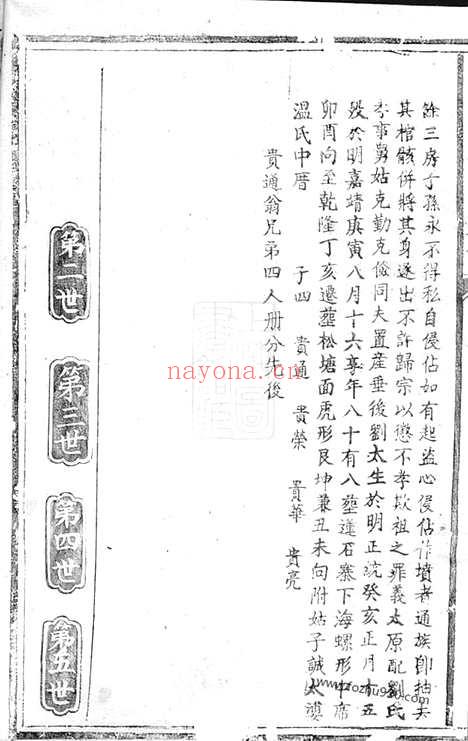 餘三房子孫永不得私自侵佔如有起盜心侵佔作墳者通族即抬夫
其棺骸併將其身逐出不許歸宗以懲不孝欺祖之罪義太原配劉氏
孝事舅姑克勤克儉同夫置產垂後劉太生於明正統癸亥正月十五
歿於明嘉靖庚寅八月十六享年八十有八塟蓮石寨下海螺形中席
卯酉向至乾隆丁亥遷塟松塘面虎形艮坤兼丑未向附姑子誠太瀆
溫氏中厝 子四 貴通 貴榮 貴華 貴亮
貴通翁兄弟四人册分先後
第二世
第三世
第四世
第五世
nayona.cn